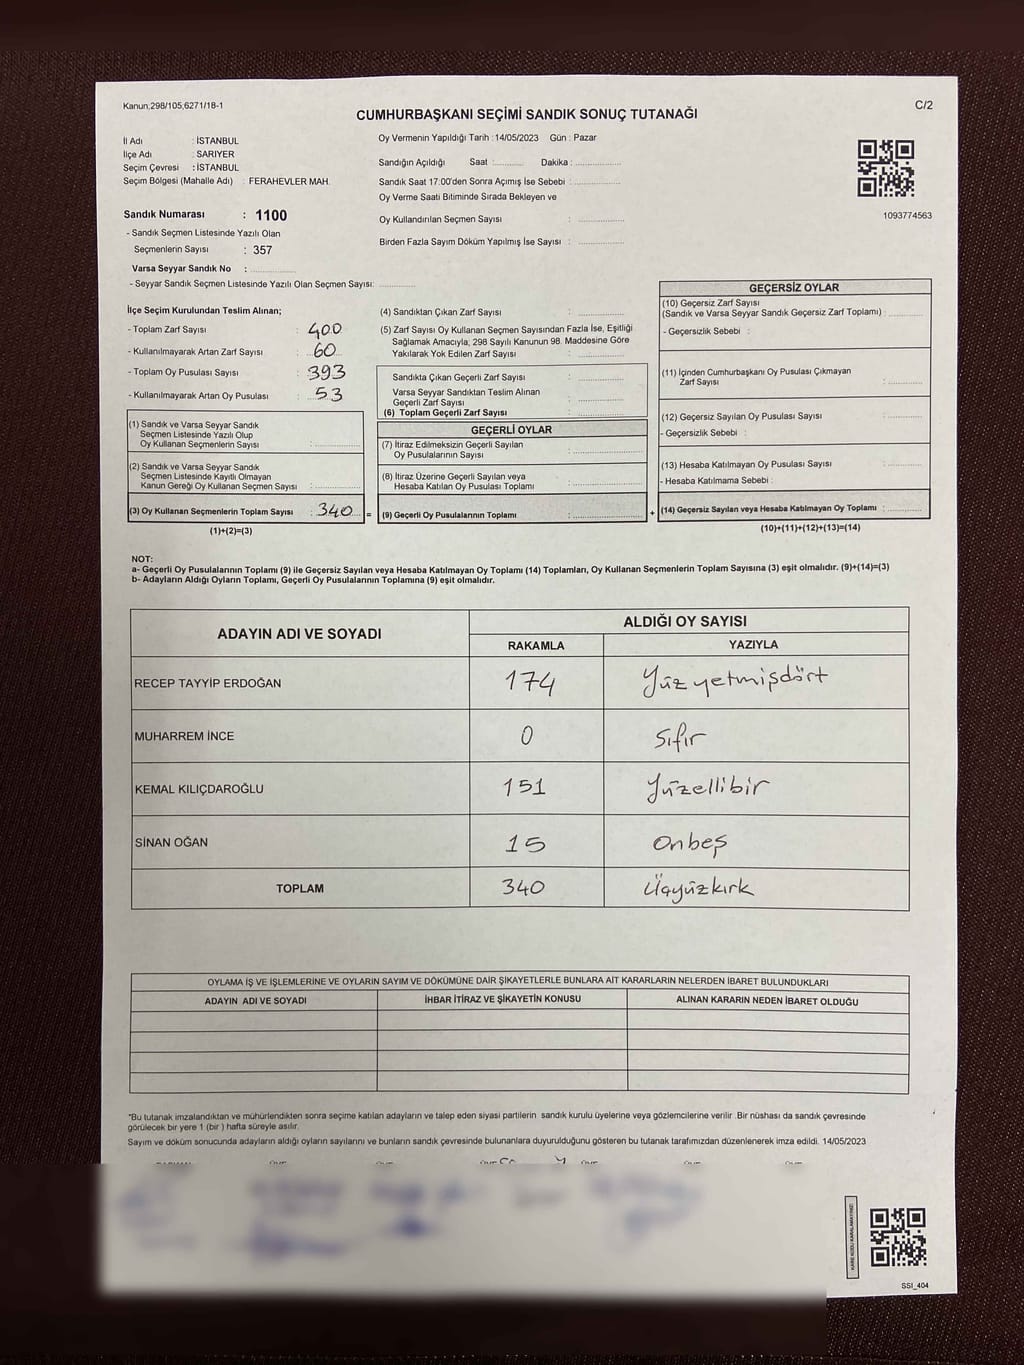 Kanun;298/105;6271/18-1
C/2
CUMHURBAŞKANI SEÇİMİ SANDIK SONUÇ TUTANAĞI
İl Adı : İSTANBUL
İlçe Adı : SARIYER
Seçim Çevresi : İSTANBUL
Seçim Bölgesi (Mahalle Adı) : FERAHEVLER MAH.
Oy Vermenin Yapıldığı Tarih : 14/05/2023 Gün : Pazar
Sandığın Açıldığı Saat : Dakika :
Sandık Saat 17:00'den Sonra Açımış İse Sebebi :
Oy Verme Saati Bitiminde Sırada Bekleyen ve
Oy Kullandırılan Seçmen Sayısı :
Birden Fazla Sayım Döküm Yapılmış İse Sayısı :
1093774563
Sandık Numarası : 1100
- Sandık Seçmen Listesinde Yazılı Olan
Seçmenlerin Sayısı : 357
Varsa Seyyar Sandık No :
- Seyyar Sandık Seçmen Listesinde Yazılı Olan Seçmen Sayısı:
İlçe Seçim Kurulundan Teslim Alınan;
- Toplam Zarf Sayısı : 400
- Kullanılmayarak Artan Zarf Sayısı : 60
- Toplam Oy Pusulası Sayısı : 393
- Kullanılmayarak Artan Oy Pusulası : 53
(1) Sandık ve Varsa Seyyar Sandık
Seçmen Listesinde Yazılı Olup
Oy Kullanan Seçmenlerin Sayısı :
(2) Sandık ve Varsa Seyyar Sandık
Seçmen Listesinde Kayıtlı Olmayan
Kanun Gereği Oy Kullanan Seçmen Sayısı :
(3) Oy Kullanan Seçmenlerin Toplam Sayısı : 340
(1)+(2)=(3)
=
(4) Sandıktan Çıkan Zarf Sayısı :
(5) Zarf Sayısı Oy Kullanan Seçmen Sayısından Fazla İse, Eşitliği
Sağlamak Amacıyla; 298 Sayılı Kanunun 98. Maddesine Göre
Yakılarak Yok Edilen Zarf Sayısı :
Sandıkta Çıkan Geçerli Zarf Sayısı :
Varsa Seyyar Sandıktan Teslim Alınan
Geçerli Zarf Sayısı :
(6) Toplam Geçerli Zarf Sayısı :
GEÇERLİ OYLAR
(7) İtiraz Edilmeksizin Geçerli Sayılan
Oy Pusulalarının Sayısı :
(8) İtiraz Üzerine Geçerli Sayılan veya
Hesaba Katılan Oy Pusulası Toplamı :
(9) Geçerli Oy Pusulalarının Toplamı :
+
GEÇERSİZ OYLAR
(10) Geçersiz Zarf Sayısı
(Sandık ve Varsa Seyyar Sandık Geçersiz Zarf Toplamı) :
- Geçersizlik Sebebi :
(11) İçinden Cumhurbaşkanı Oy Pusulası Çıkmayan
Zarf Sayısı :
(12) Geçersiz Sayılan Oy Pusulası Sayısı :
- Geçersizlik Sebebi :
(13) Hesaba Katılmayan Oy Pusulası Sayısı :
- Hesaba Katılmama Sebebi :
(14) Geçersiz Sayılan veya Hesaba Katılmayan Oy Toplamı :
(10)+(11)+(12)+(13)=(14)
NOT:
a- Geçerli Oy Pusulalarının Toplamı (9) ile Geçersiz Sayılan veya Hesaba Katılmayan Oy Toplamı (14) Toplamları, Oy Kullanan Seçmenlerin Toplam Sayısına (3) eşit olmalıdır. (9)+(14)=(3)
b- Adayların Aldığı Oyların Toplamı, Geçerli Oy Pusulalarının Toplamına (9) eşit olmalıdır.
ADAYIN ADI VE SOYADI ALDIĞI OY SAYISI
RAKAMLA YAZIYLA
RECEP TAYYİP ERDOĞAN 174 Yüz yetmişdört
MUHARREM İNCE 0 Sıfır
KEMAL KILIÇDAROĞLU 151 Yüzellibir
SİNAN OĞAN 15 Onbeş
TOPLAM 340 Üçyüzkırk
OYLAMA İŞ VE İŞLEMLERİNE VE OYLARIN SAYIM VE DÖKÜMÜNE DAİR ŞİKAYETLERLE BUNLARA AİT KARARLARIN NELERDEN İBARET BULUNDUKLARI
ADAYIN ADI VE SOYADI İHBAR İTİRAZ VE ŞİKAYETİN KONUSU ALINAN KARARIN NEDEN İBARET OLDUĞU
*Bu tutanak imzalandıktan ve mühürlendikten sonra seçime katılan adayların ve talep eden siyasi partilerin sandık kurulu üyelerine veya gözlemcilerine verilir. Bir nüshası da sandık çevresinde
görülecek bir yere 1 (bir) hafta süreyle asılır.
Sayım ve döküm sonucunda adayların aldığı oyların sayılarını ve bunların sandık çevresinde bulunanlara duyurulduğunu gösteren bu tutanak tarafımızdan düzenlenerek imza edildi. 14/05/2023
KARE KODU KARALAMAYINIZ!
SSI_404